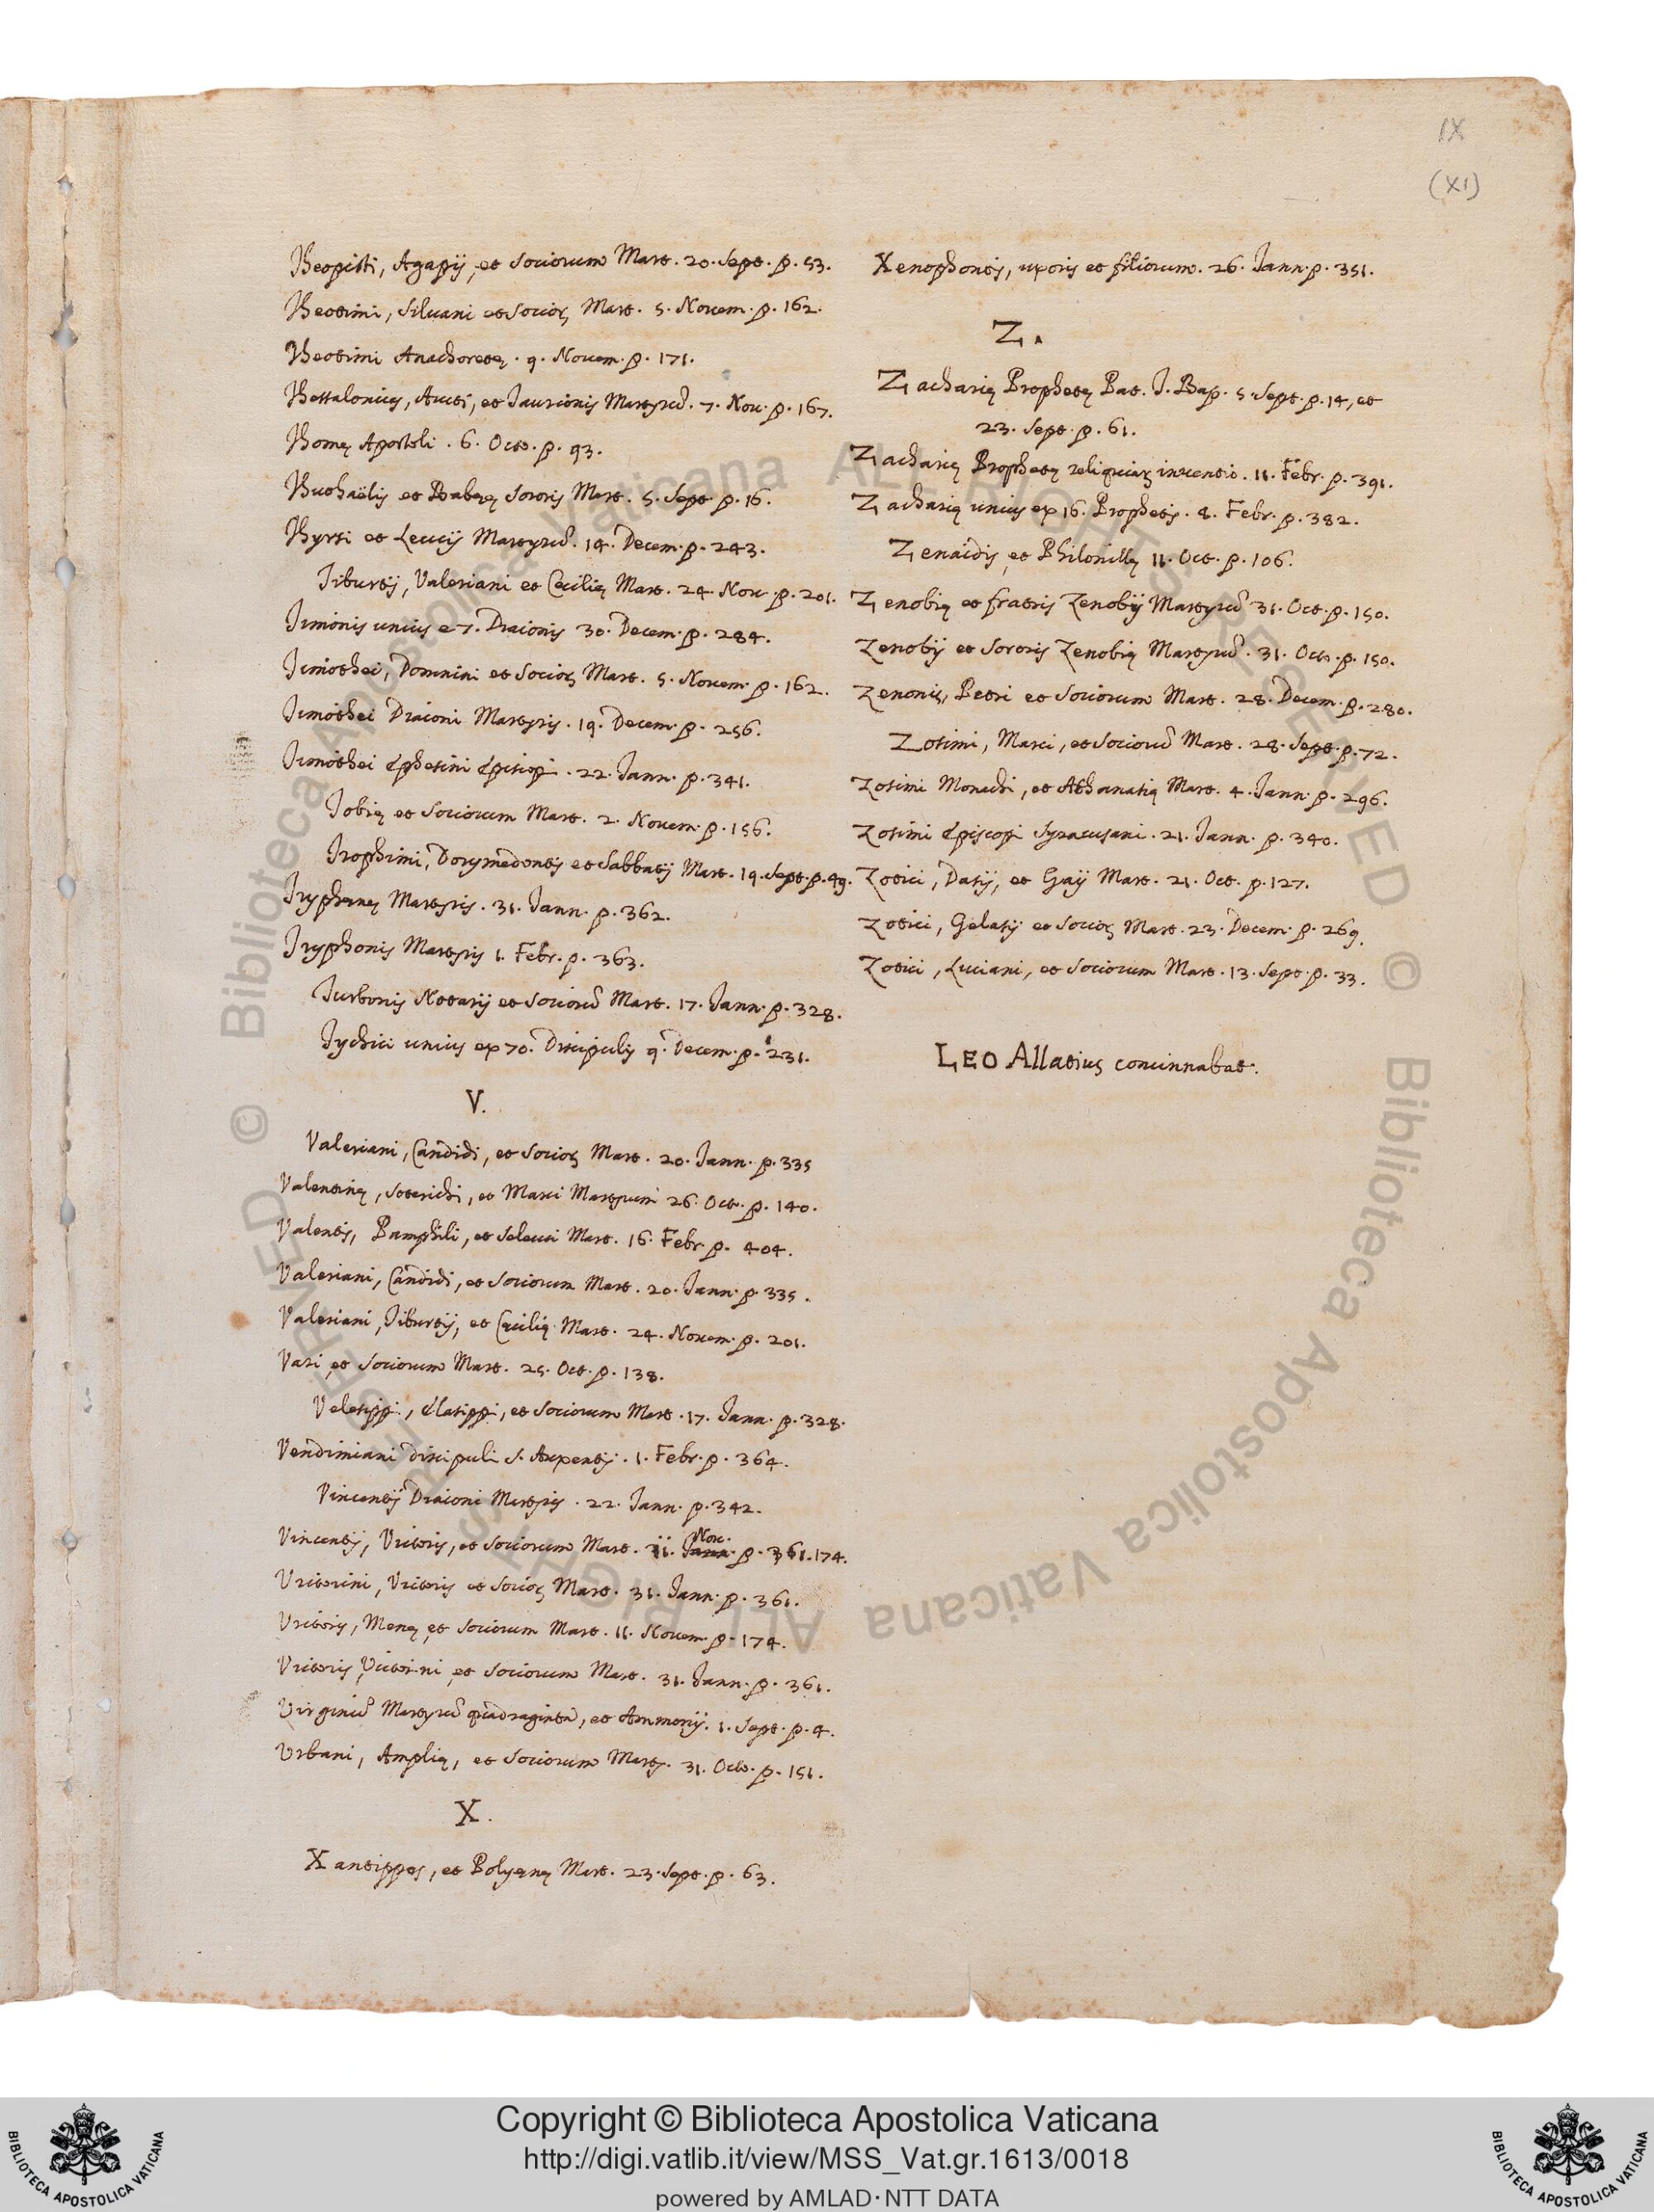 IX
(XI)
Theopisti, Agapij, et Sociorum Mart. 20. Sept. p. 53.
Theotimi, Siluani et Socioꝝ Mart. 5. Nouem. p. 162.
Theotimi Anachoretę. 9. Nouem. p. 171.
Thessalonicę, Aucti, et Taurionis Martyrū. 7. Nou. p. 167.
Thomę Apostoli. 6. Octo. p. 93.
Thuthaëlis et Babęę Sororis Mart. 5. Sept. p. 16.
Thyrsi et Leucij Martyrū. 14. Decem. p. 243.
Tiburtij, Valeriani et Cęcilię Mart. 24. Nou. p. 201.
Timonis unius e 7. Diaconis 30. Decem. p. 284.
Timothei, Domnini et Socioꝝ Mart. 5. Nouem. p. 162.
Timothei Diaconi Martyris. 19. Decem. p. 256.
Timothei Ephesini Episcopi. 22. Jann. p. 341.
Tobię et Sociorum Mart. 2. Nouem. p. 156.
Trophimi, Dorymedontis et Sabbatij Mart. 19. Sept. p. 49.
Tryphęnę Martyris. 31. Jann. p. 362.
Tryphonis Martyris 1. Febr. p. 363.
Turbonis Notarij et Sociorū Mart. 17. Jann. p. 328.
Tychici unius ex 70. Discipulis 9. Decem. p. 231.
V.
Valeriani, Candidi, et Socioꝝ Mart. 20. Jann. p. 335
Valentinę, Soterichi, et Marci Martyrum 26. Oct. p. 140.
Valentis, Pamphili, et Seleuci Mart. 16. Febr. p. 404.
Valeriani, Candidi, et Sociorum Mart. 20. Jann. p. 335.
Valeriani, Tiburtij, et Cęcilię Mart. 24. Nouem. p. 201.
Vari, et Sociorum Mart. 25. Oct. p. 138.
Velesippi, Elasippi, et Sociorum Mart. 17. Jann. p. 328.
Vendimiani discipuli S. Auxentij. 1. Febr. p. 364.
Vincentij Diaconi Martyris. 22. Jann. p. 342.
Vincentij, Victoris, et Sociorum Mart. 11. Jann. Nou. p. 361. 174.
Victorini, Victoris et Socioꝝ Mart. 31. Jann. p. 361.
Victoris, Menę, et Sociorum Mart. 11. Nouem. p. 174.
Victoris, Victorini, et Sociorum Mart. 31. Jann. p. 361.
Virginū Martyrū quadraginta, et Ammonij. 1. Sept. p. 4.
Vrbani, Amplię, et Sociorum Mart. 31. Octo. p. 151.
X.
Xantippes, et Polyęnę Mart. 23. Sept. p. 63.
Xenophontis, uxoris et filiorum. 26. Jann. p. 351.
Z.
Zacharię Prophetę Pat. J. Bap. 5. Sept. p. 14, et
23. Sept. p. 61.
Zacharię Prophetę reliquiaꝝ inuentio. 11. Febr. p. 391.
Zacharię unius ex 16. Prophetis. 8. Febr. p. 382.
Zenaidis, et Philonillę 11. Oct. p. 106.
Zenobię et fratris Zenobij Martyrū 31. Oct. p. 150.
Zenobij et Sororis Zenobię Martyrū. 31. Octo. p. 150.
Zenonis, Petri et Sociorum Mart. 28. Decem. p. 280.
Zosimi, Marci, et Sociorū Mart. 28. Sept. p. 72.
Zosimi Monachi, et Athanasię Mart. 4. Jann. p. 296.
Zosimi Episcopi Syracusani. 21. Jann. p. 340.
Zotici, Dasij, et Gaij Mart. 21. Oct. p. 127.
Zotici, Gelasij et Socioꝝ Mart. 23. Decem. p. 269.
Zotici, Luciani, et Sociorum Mart. 13. Sept. p. 33.
LEO Allatius concinnabat.
© Biblioteca Apostolica Vaticana ALL RIGHTS RESERVED © Biblioteca Apostolica Vaticana ALL RIGHTS RESERVED
Copyright © Biblioteca Apostolica Vaticana
http://digi.vatlib.it/view/MSS_Vat.gr.1613/0018
powered by AMLAD·NTT DATA
BIBLIOTECA APOSTOLICA VATICANA
BIBLIOTECA APOSTOLICA VATICANA